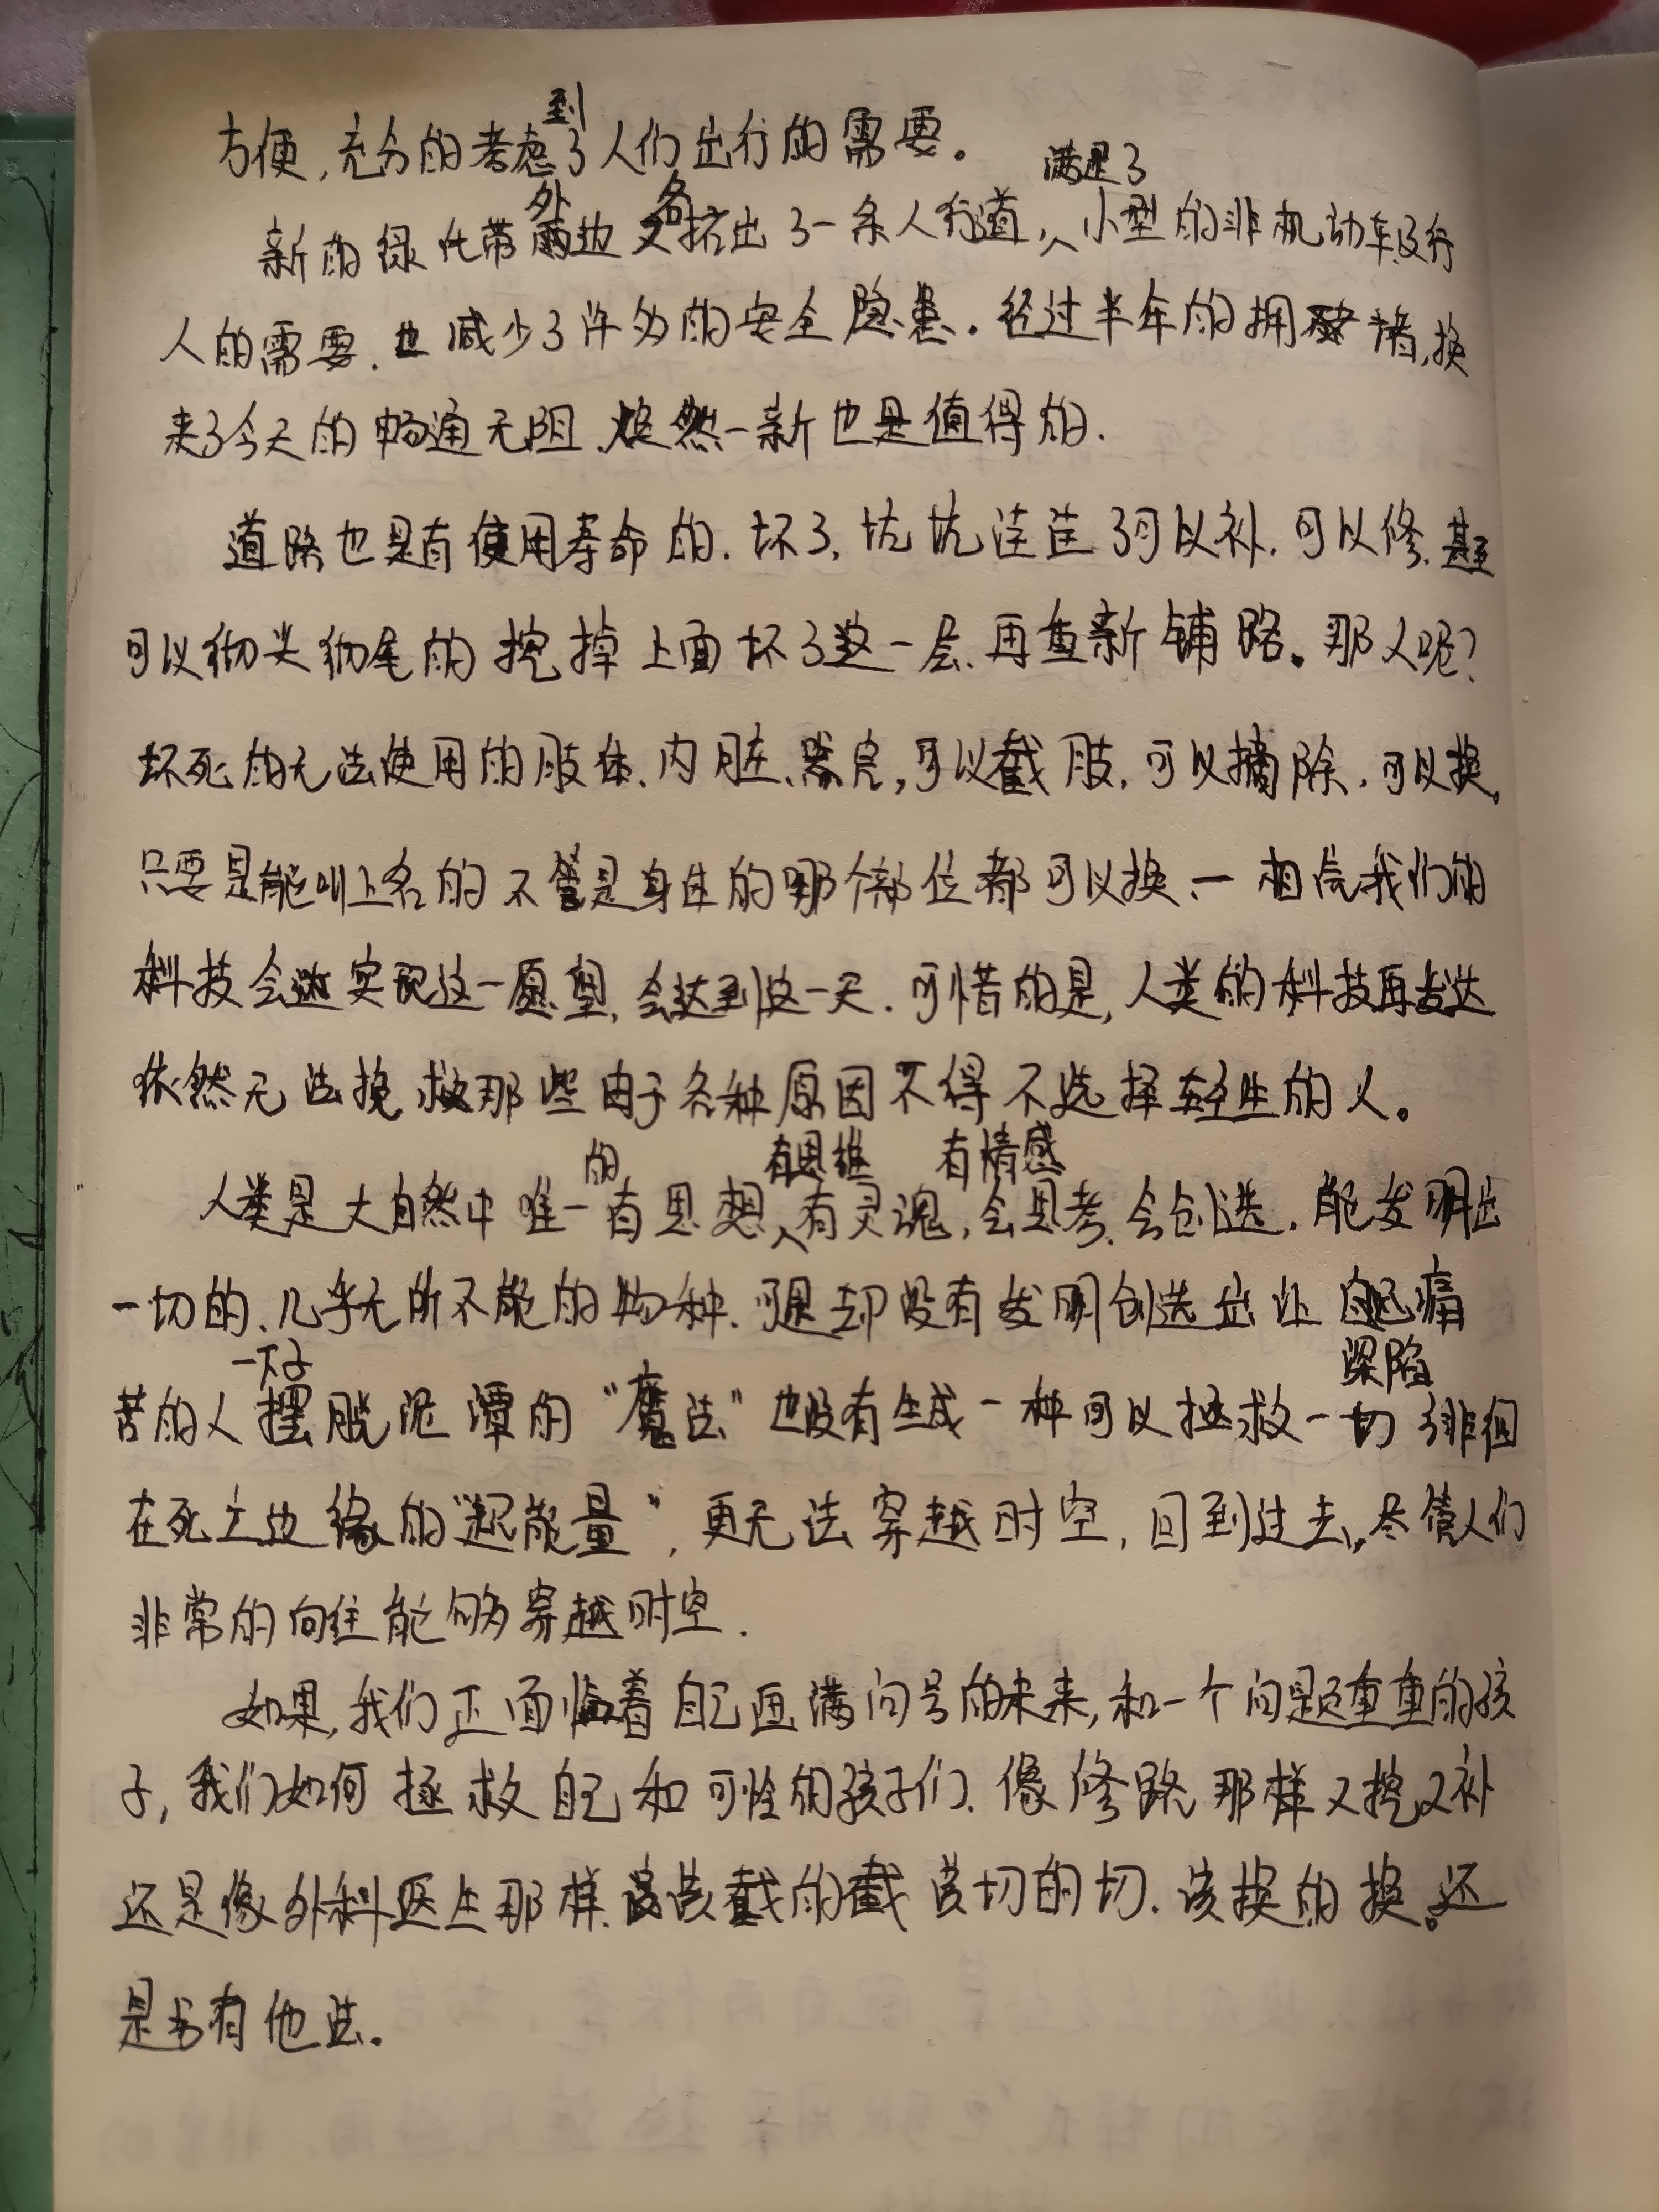 方便,充分的考虑到了人们出行的需要。
新的绿化带外边各挤出了一条人行道,满足了小型的非机动车及行
人的需要.也减少了许多的安全隐患.经过半年的拥堵,换
来了今天的畅通无阻、焕然一新也是值得的.
道路也是有使用寿命的.坏了,坑坑洼洼了可以补.可以修.甚至
可以彻头彻尾的挖掉上面坏了这一层.再重新铺路。那人呢?
坏死的无法使用的肢体.内脏、器官,可以截肢.可以摘除.可以换,
只要是能叫上名的不管是身体的哪个部位都可以换、一相信我们的
科技会实现这一愿望,会达到这一天.可惜的是,人类的科技再发达
依然无法挽救那些由于各种原因不得不选择轻生的人。
人类是大自然中唯一的有思想、有思维有灵魂,有情感会思考.会创造.能发明出
一切的、几乎无所不能的物种.可是却没有发明创造出让自己痛
苦的人一下子摆脱泥潭的“魔法”也没有生成一种可以拯救一切深陷徘徊
在死亡边缘的“超能量”,更无法穿越时空,回到过去,尽管人们
非常的向往能够穿越时空.
如果,我们正面临着自己画满问号的未来,和一个问题重重的孩
子,我们如何拯救自己和可怜的孩子们.像修路那样又挖又补
还是像外科医生那样.该截的截该切的切.该换的换。还
是另有他法.